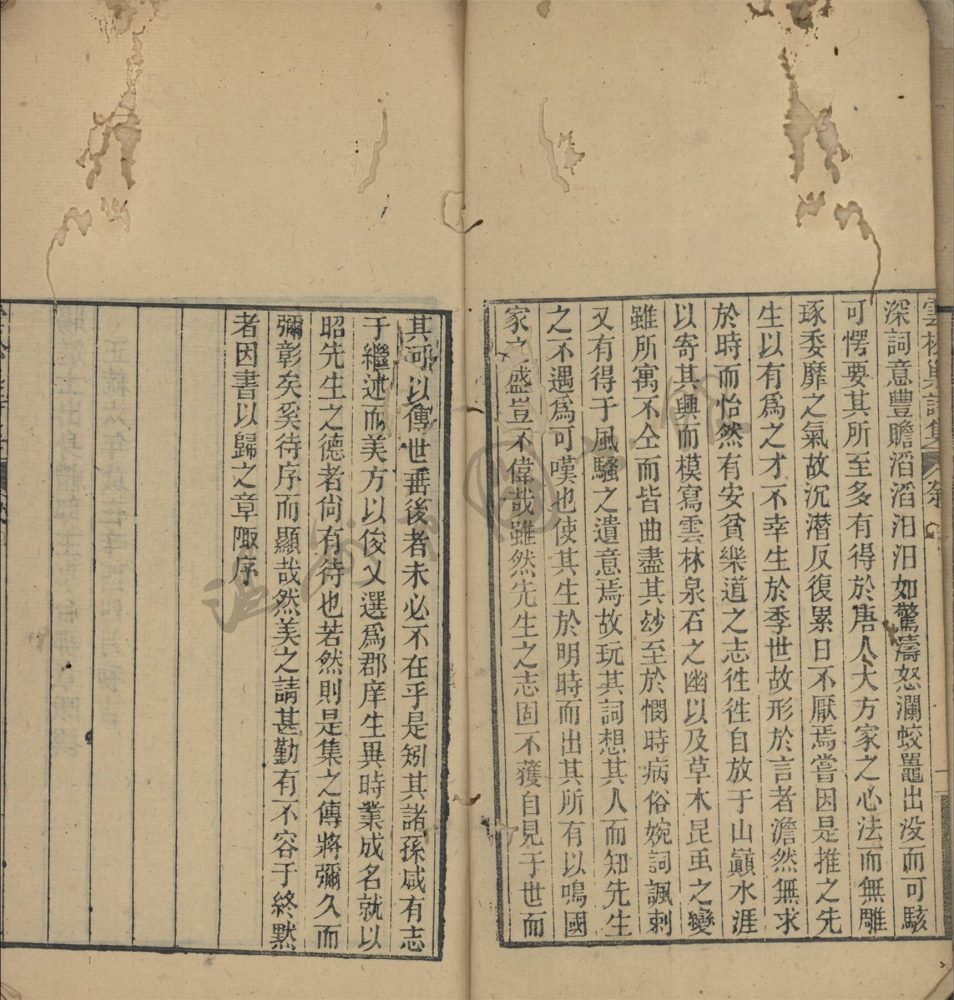 深詞意豐贍滔滔汩汩如驚濤怒瀾蛟鼉出没而可駭
可愕要其所至多有得於唐人大方家之心法而無雕
琢委靡之氣故沉潛反復累日不厭焉嘗因是推之先
生以有爲之才不幸生於季世故形於言者澹然無求
於時而怡然有安貧樂道之志徃徃自放于山巔水涯
以寄其興而模寫雲林泉石之幽以及草木昆虫之變
雖所寓不仝而皆曲盡其玅至於憫時病俗婉詞諷刺
又有得于風騷之遺意焉故玩其詞想其人而知先生
之不遇爲可嘆也使其生於明時而出其所有以鳴國
家之盛豈不偉哉雖然先生之志固不獲自見于世而
其可以傳世垂後者未必不在乎是矧其諸孫咸有志
于繼述而美方以俊乂選爲郡庠生異時業成名就以
昭先生之德者尙有待也若然則是集之傳將彌久而
彌彰矣奚待序而顯哉然美之請甚勤有不容于終黙
者因書以歸之章陬序